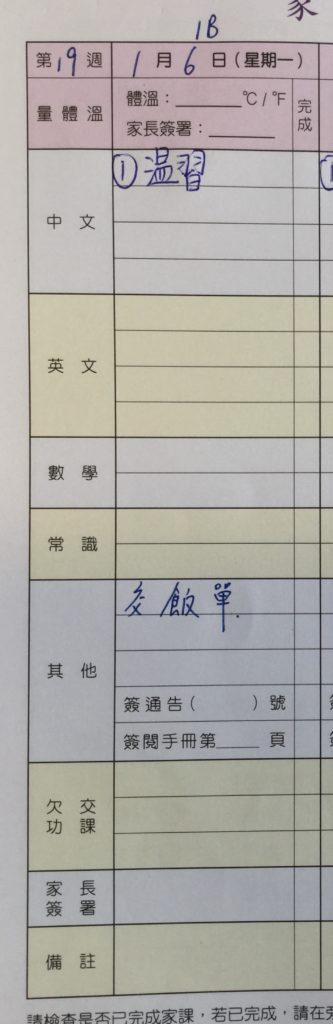 家
1B
第19週 1月6日(星期一)
量體溫 體溫：______ ℃/℉ 完成
家長簽署：______
中文 ①温習
英文
數學
常識
其他 交飯單.
簽通告( )號
簽閱手冊第____頁
欠交功課
家長簽署
備註
請檢查是否已完成家課，若已完成，請在